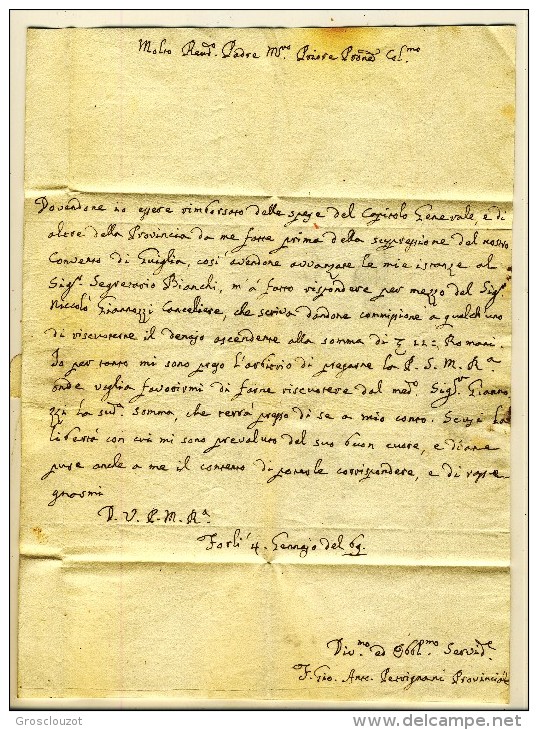 Molto Rend. Padre Mro Priore Prone Col.mo
Dovendone io essere rimborsato delle spese del Capitolo Generale, e di
altre della Provincia da me fatte prima della soppressione del nostro
Convento di Guiglia, così avendone avvanzate le mie istanze al
Sigr. Segretario Bianchi, m'a fatto rispondere per mezzo del Sigr
Niccolò Giannozzi Canceliere, che scriva dandone commissione a qualch'uno
di riscuoterne il denajo ascendente alla somma di 22: Romani.
Io per tanto mi sono preso l'arbitrio di pregarne la P. S. M. Ra.
onde voglia favorirmi di farne riscuotere dal med. Sigr. Gianno
zzi la sud. somma, che terrà presso di se a mio conto. Scusi la
libertà con cui mi sono prevaluto del suo buon cuore, e diane
pure anche a me il contento di poterle corrispondere, e di rasse
gnarmi
D. V. P. M. Ra.
Forlì 4. Gennajo del 69.
Div.mo ed Obbl.mo Servid.e
F. Gio. Ant. Provinciale
Grosclouzot
delcampe.net